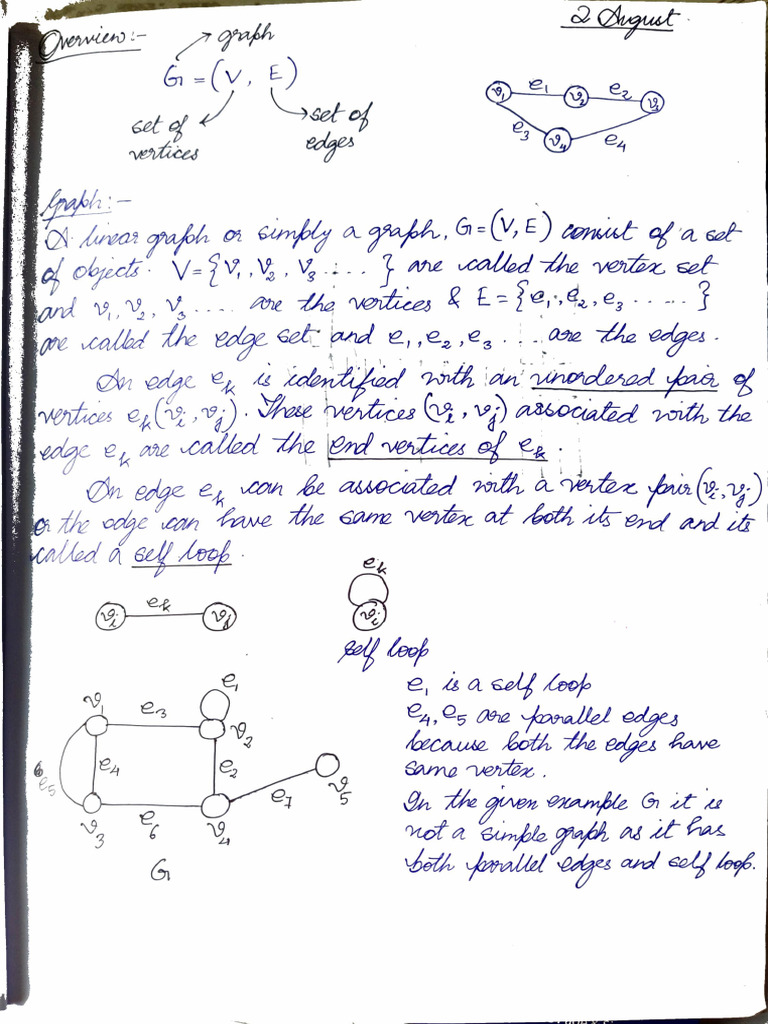 2 August.
Overview:-
graph
G = (V, E)
set of vertices
set of edges
v1 e1 v2 e2 v3
e3 v4 e4
Graph:-
A linear graph or simply a graph, G = (V, E) consist of a set
of objects. V = {V1, V2, V3 .... } are called the vertex set
and v1, v2, v3 .... are the vertices & E = {e1, e2, e3 ..... }
are called the edge set and e1, e2, e3 ... are the edges.
An edge ek is identified with an unordered pair of
vertices ek (vi, vj). These vertices (vi, vj) associated with the
edge ek are called the end vertices of ek.
An edge ek can be associated with a vertex pair (vi, vj)
or the edge can have the same vertex at both its end and its
called a self loop.
ek
vi ek vj
vi
self loop
e1
e1 is a self loop
v1 e3 v2
e4, e5 are parallel edges
because both the edges have
same vertex.
e5 e4 e2
v3 e6 v4 e7 v5
In the given example G it is
not a simple graph as it has
both parallel edges and self loop.
G